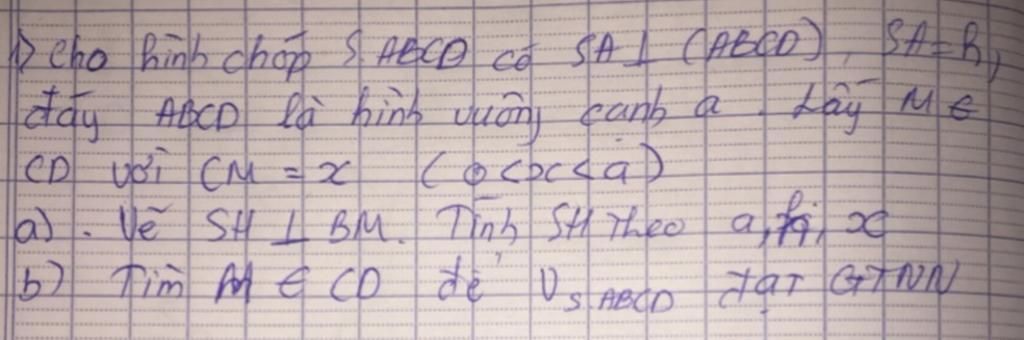 1) Cho hình chóp S.ABCD có SA ⊥ (ABCD), SA = h,
đáy ABCD là hình vuông cạnh a. Lấy M ∈
CD với CM = x (0 < x < a)
a). Vẽ SH ⊥ BM. Tính SH theo a, h, x
b) Tìm M ∈ CD để V S.ABCD đạt GTNN